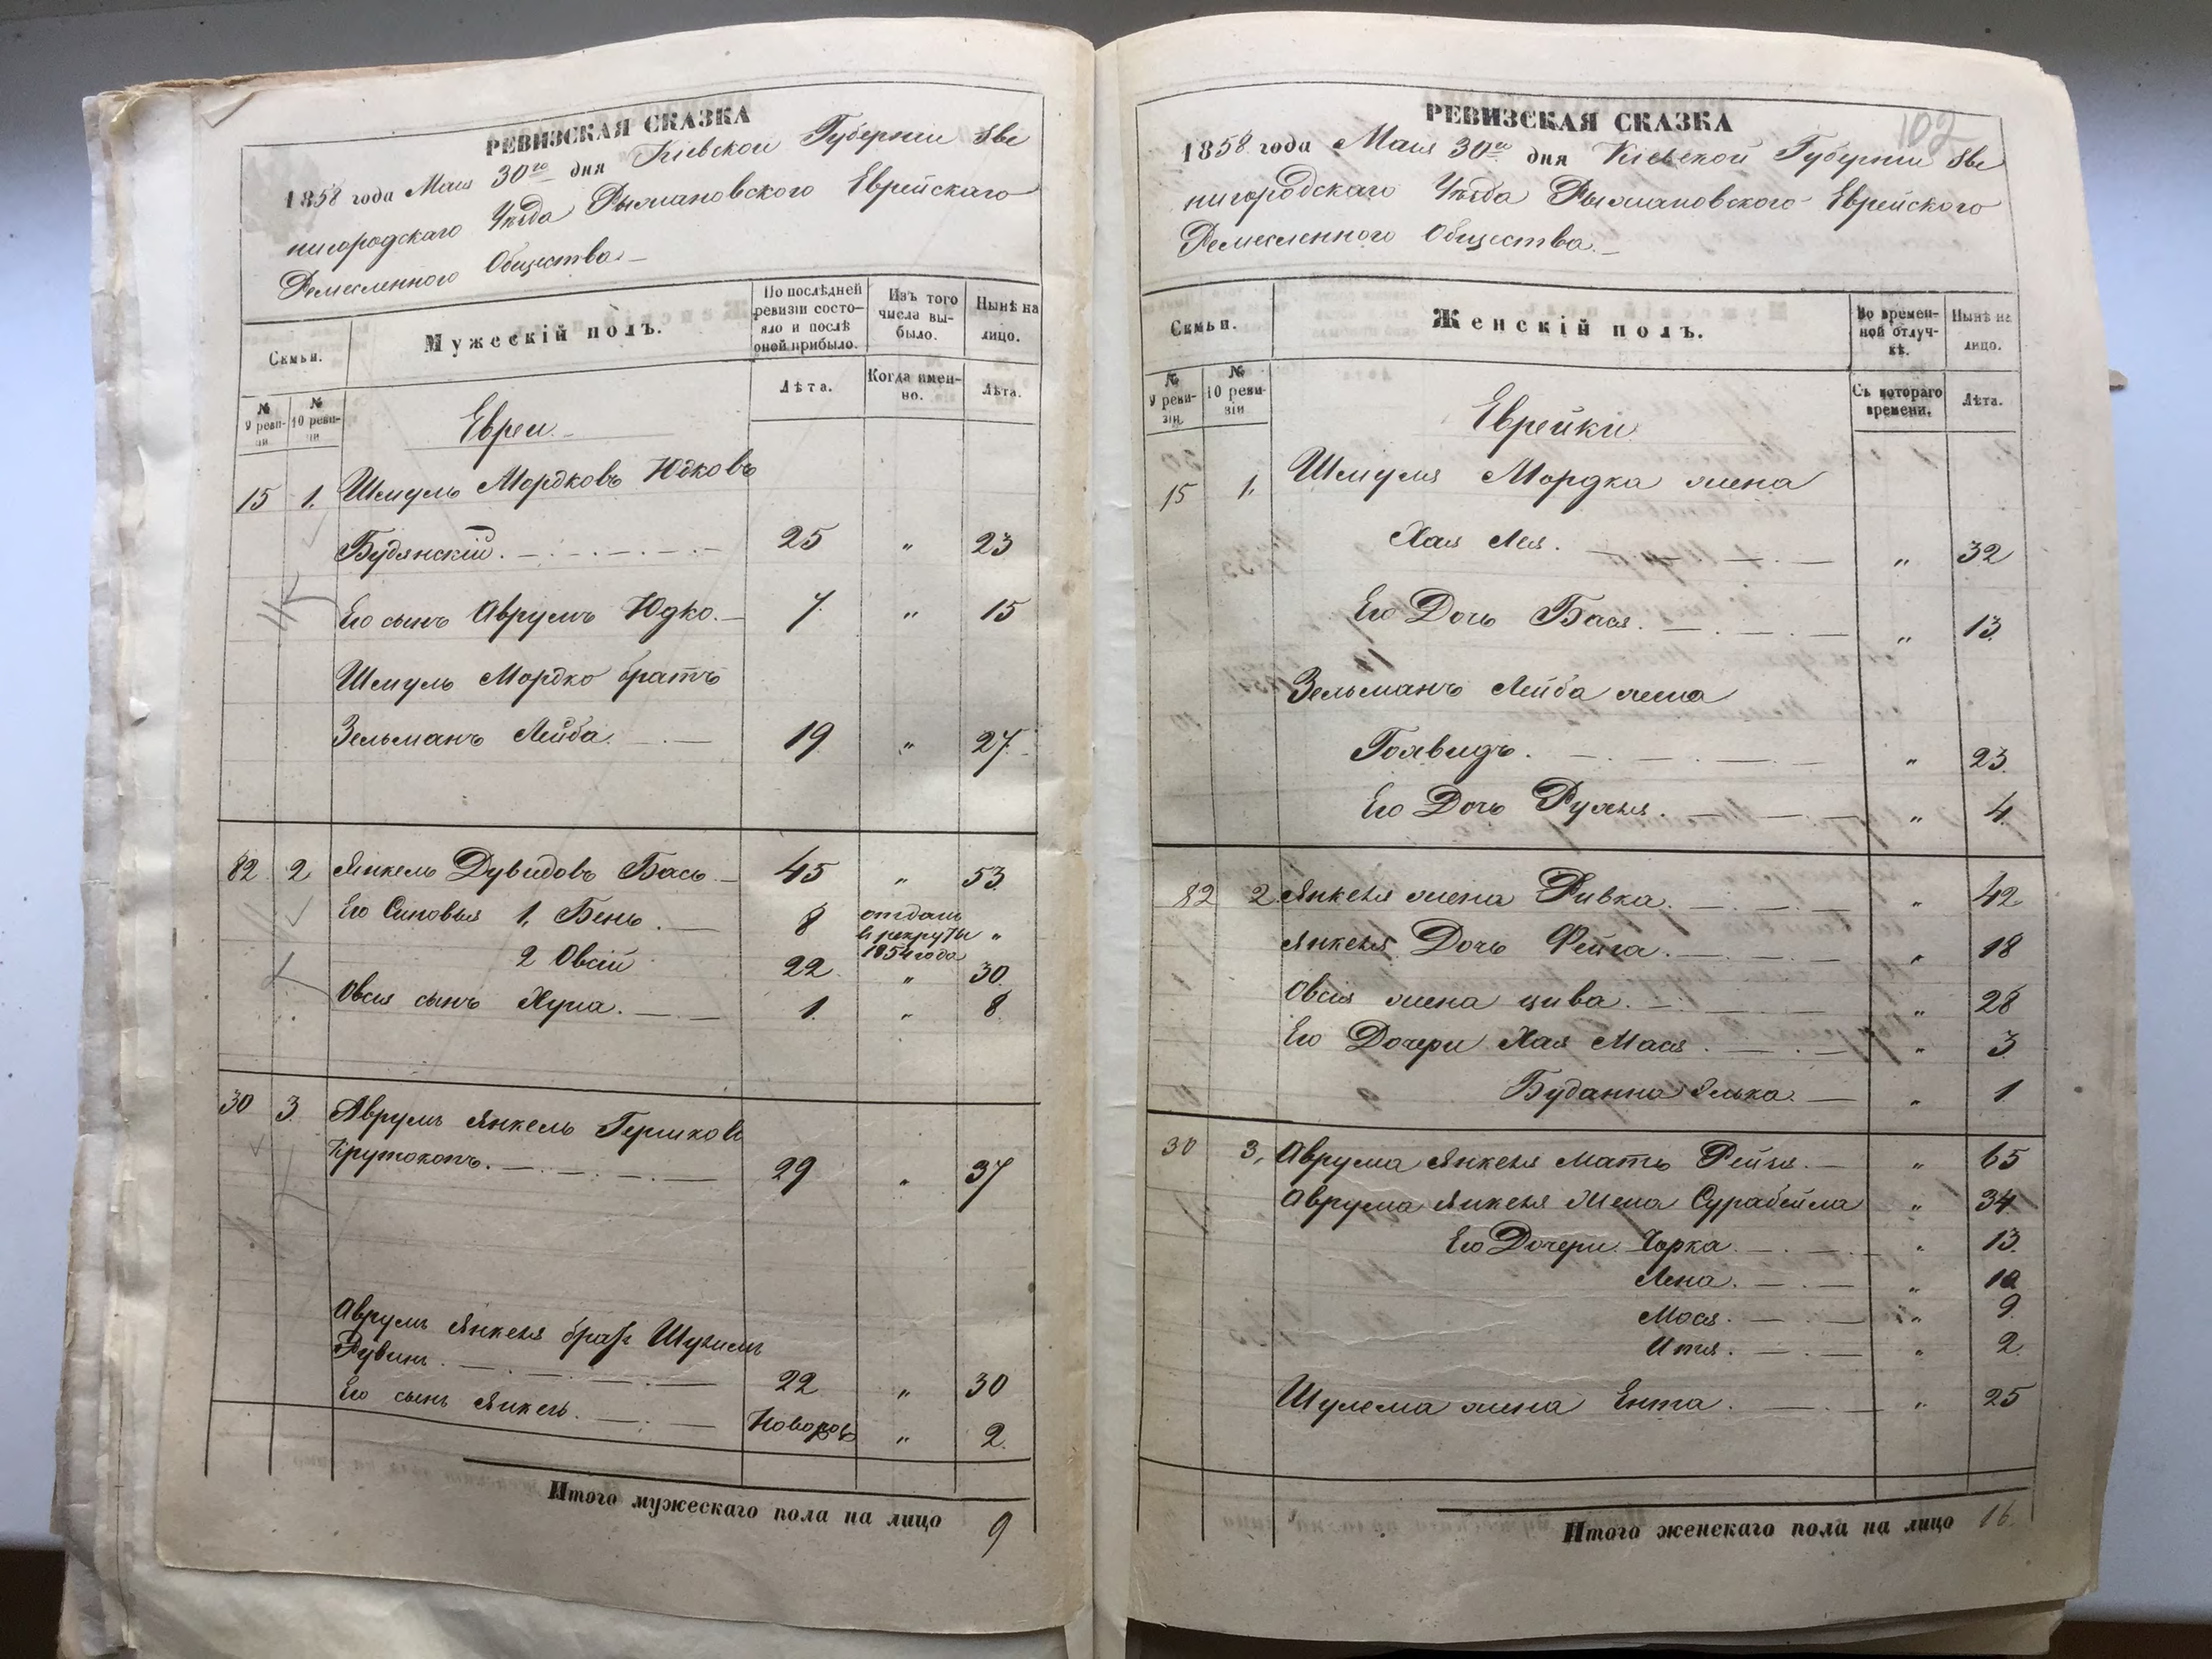 РЕВИЗСКАЯ СКАЗКА
1858 года Мая 30го дня Кіевской Губерніи Зве
нигородскаго Уѣзда Рыжановского Еврейскаго
Ремесленного Общества
Семьи.
Мужескій полъ.
По послѣдней ревизіи состояло и послѣ оной прибыло.
Изъ того числа выбыло.
Нынѣ на лицо.
№ 9 ревизіи
№ 10 ревизіи
Лѣта.
Когда именно.
Лѣта.
Евреи.
15 1. Шмуль Мордковъ Юдковъ
Будянскій. 25 " 23
Его сынъ Аврумъ Юдко. 7 " 15
Шмуль Мордко братъ
Зельманъ Лейба. 19 " 27
82 2 Янкель Дувидовъ Бась 45 " 53
Его Сыновья 1, Бень. 8 отданъ в рекруты 1854 года "
2 Овсій 22 " 30
Овсія сынъ Хуна. 1. " 8
30 3 Аврумъ Янкель Гершков
Крутокопъ. 29 " 37
Аврумъ Янкеля братъ Шулимъ
Рувин. 22 " 30
Его сынъ Янкель. Новорож " 2
Итого мужескаго пола на лицо 9
102
РЕВИЗСКАЯ СКАЗКА
1858 года Мая 30го дня Кіевской Губерніи Зве
нигородскаго Уѣзда Рыжановского Еврейского
Ремесленного Общества
Семьи.
Женскій полъ.
Во временной отлучкѣ.
Нынѣ на лицо.
№ 9 ревизіи
№ 10 ревизіи
Съ котораго времени.
Лѣта.
Еврейки
15 1. Шмуля Мордка жена
Хая Лея. " 32
Его Дочь Бася. " 13
Зельманъ Лейба жена
" 23
Его Дочь Рухля. " 4
82 2 Янкеля жена Ривка. " 42
Янкеля Дочь Фейга. " 18
Овсія жена цива. " 28
Его Дочери Хая Мася. " 3
" 1
30 3, Аврума Янкеля мать Рейзя. " 65
Аврума Янкеля Жена Сурабейла " 34
Его Дочери. Чарка. " 13
" 10
Мося. " 9
Итя. " 2
Шулема жена Ента. " 25
Итого женскаго пола на лицо 16